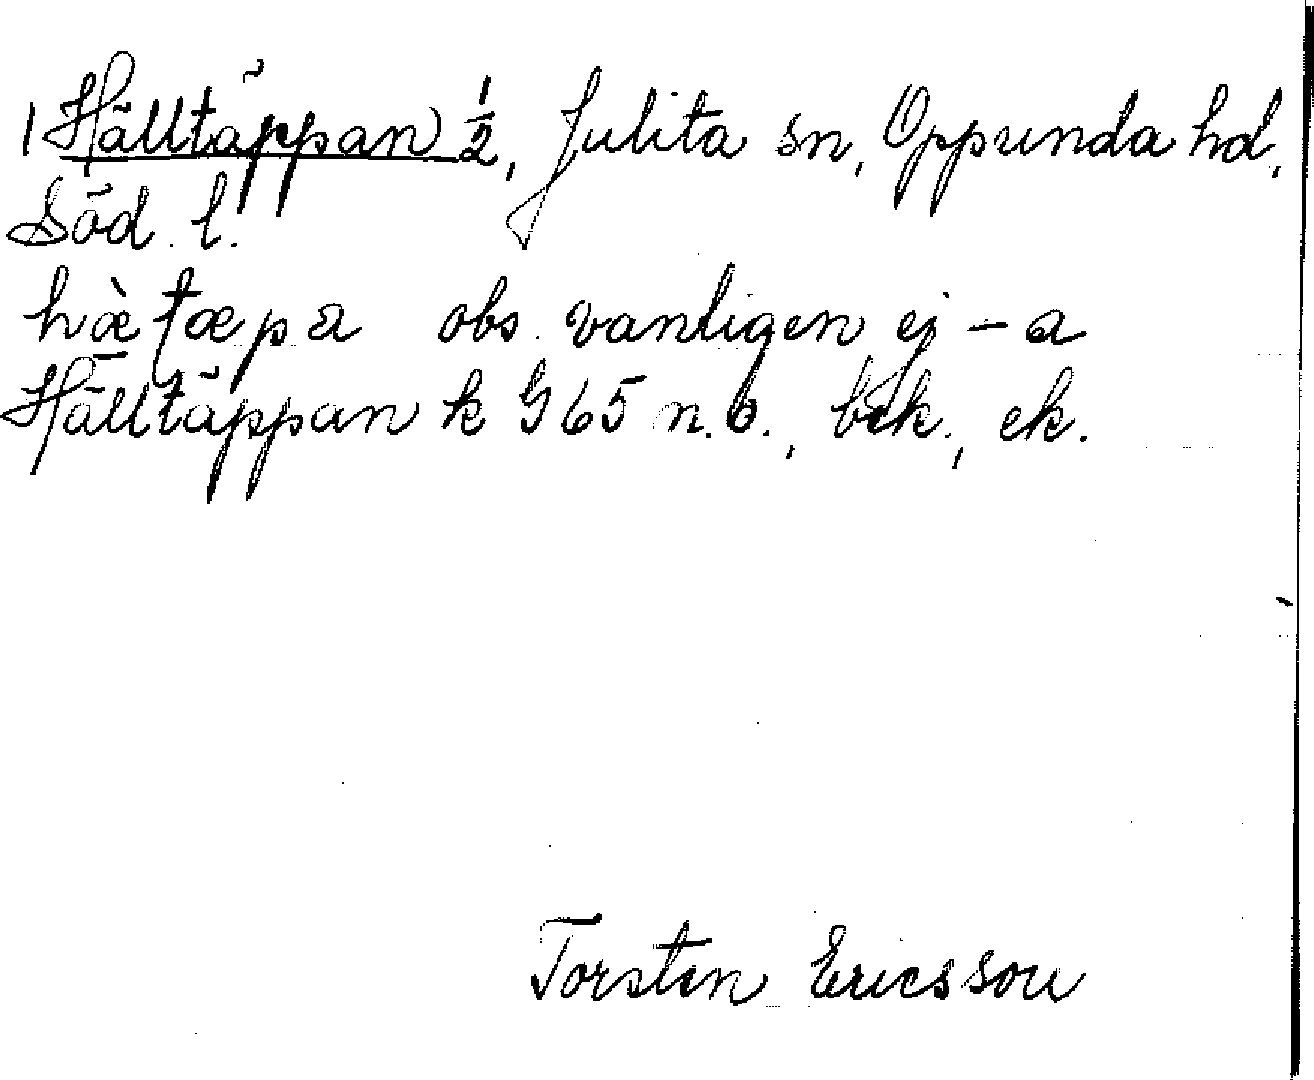 1 Hälltäppan ½, Julita sn, Oppunda hd,
Söd. l.
hæ̀tæpa obs. vanligen ej -a
Hälltäppan k G 65 n.o., bek., ek.
Torsten Ericsson